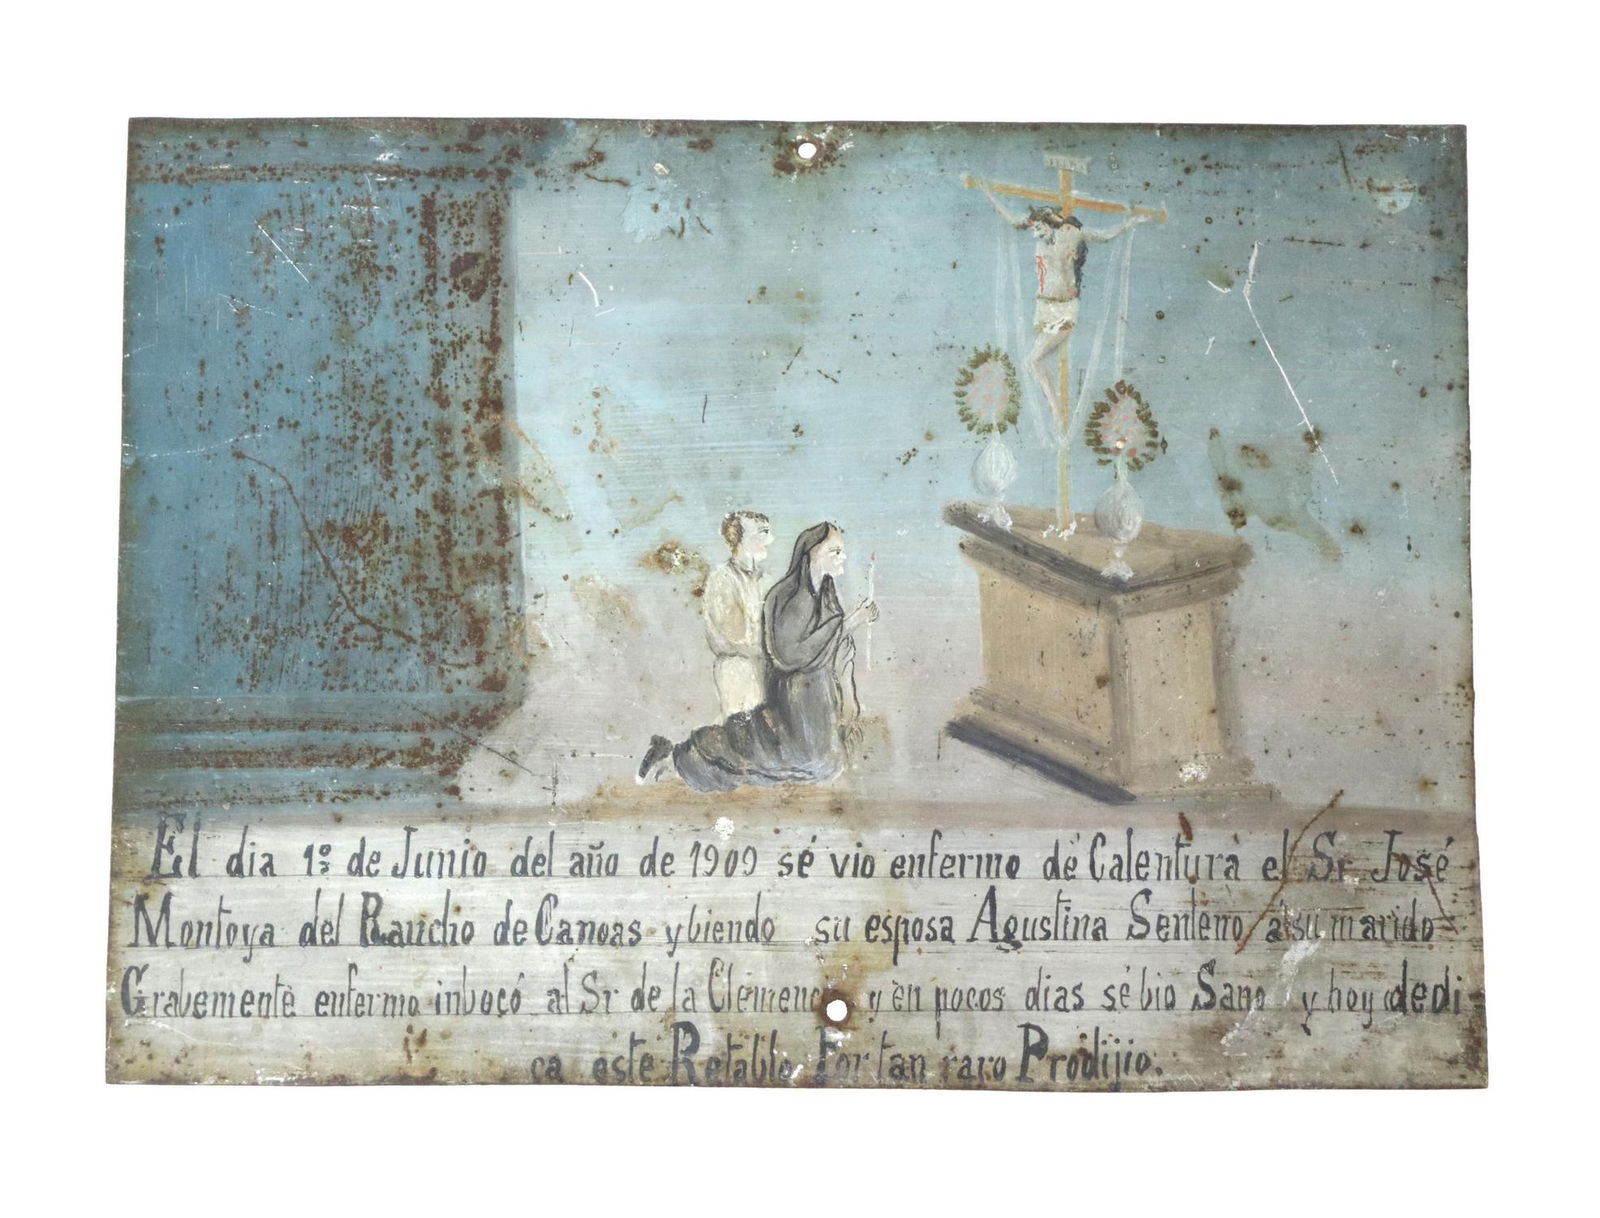 El dia 1º de Junio del año de 1909 sé vio enfermo dé Calentura el Sr. José
Montoya del Rancho de Canoas y biendo su esposa Agustina Senteno á su marido
Gravemente enfermo inbocó al Sr de la Clemenc y en pocos dias sé bio Sano y hoy dedi
ca este Retablo Por tan raro Prodijio.